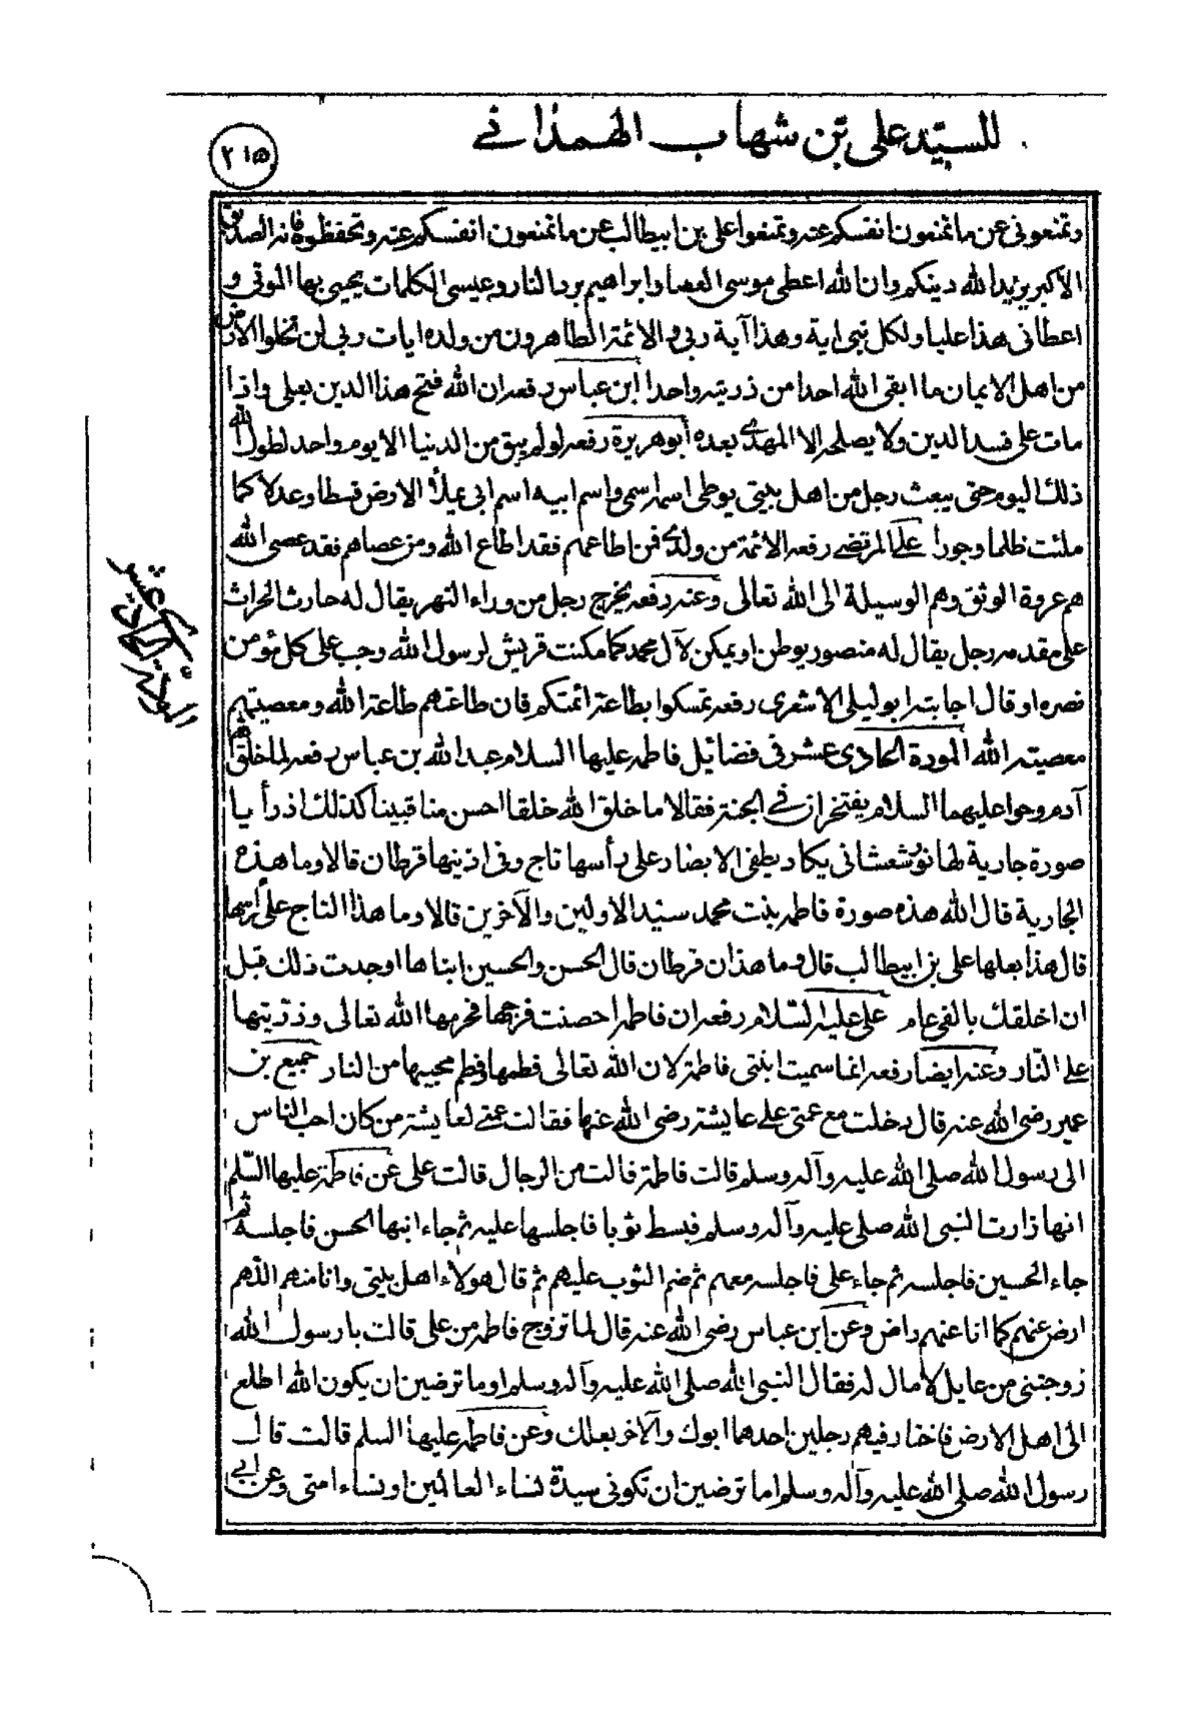 للسيّد علي بن شهاب الهمذاني
٢١٥
وتمنعوني عن ما تمنعون انفسكم عنه وتمنعوا علي بن ابيطالب عن ما تمنعون انفسكم عنه وتحفظوه فانه الصديق
الاكبر يزيد الله دينكم وان الله اعطى موسى العصا وابراهيم برد النار وعيسى الكلمات يحيى بها الموتى و
اعطاني هذا عليا ولكل نبي اية وهذا آية ربي والائمة الطاهرون من ولده ايات ربي لن تخلوا الارض
من اهل الايمان ما ابقى الله احدا من ذريته واحدا ابن عباس رفعه ان الله فتح هذا الدين بعلي واذا
مات علي فسد الدين ولا يصلحه الا المهدي بعده أبو هريرة رفعه لو لم يبق من الدنيا الا يوم واحد لطول الله
ذلك اليوم حتى يبعث رجل من اهل بيتي يوطى اسمه اسمي واسم ابيه اسم ابي يملأ الارض قسطا وعدلا كما
ملئت ظلما وجورا علي المرتضى رفعه الائمة من ولدي فمن اطاعهم فقد اطاع الله ومن عصاهم فقد عصى الله
هم عروة الوثقى وهم الوسيلة الى الله تعالى وعنه رفعه يخرج رجل من وراء النهر يقال له حارث الحراث
على مقدمه رجل يقال له منصور يوطن او يمكن لآل محمد كما مكنت قريش لرسول الله وجب على كل مؤمن
نصره او قال اجابته ابو ليلى الاشعرى رفعه تمسكوا بطاعة ائمتكم فان طاعتهم طاعة الله ومعصيتهم
معصية الله المودة الحادى عشر في فضائل فاطمه عليها السلام عبد الله بن عباس رفعه لما خلق الله
آدم وحوا عليهما السلام يفتخران في الجنة فقالا ما خلق الله خلقا احسن منا فبينا كذلك اذ رأيا
صورة جارية لها نور شعشاني يكاد يطفى الابصار على رأسها تاج وفي اذنيها قرطان قالا وما هذه
الجارية قال الله هذه صورة فاطمه بنت محمد سيّد الاولين والآخرين قالا وما هذا التاج على رأسها
قال هذا بعلها علي بن ابيطالب قال وما هذان قرطان قال الحسن والحسين ابناها اوجدت ذلك قبل
ان اخلقك بالفي عام علي عليه السّلام رفعه ان فاطمة احصنت فرجها فحرمها الله تعالى وذرّيتها
على النّار وعنه ايضا رفعه انما سميت ابنتي فاطمة لان الله تعالى فطمها وفطم محبيها من النار جميع بن
عمير رضى الله عنه قال دخلت مع عمتي على عايشة رضى الله عنها فقالت عمتي لعايشة من كان احب الناس
الى رسول الله صلى الله عليه وآله وسلم قالت فاطمة قالت من الرجال قالت علي عن فاطمة عليها السّلم
انها زارت النبى الله صلى عليه وآله وسلم فبسط ثوبا فاجلسها عليه ثم جاء ابنها الحسن فاجلسه ثم
جاء الحسين فاجلسه ثم جاء علي فاجلسه معهم ثم ضم الثوب عليهم ثم قال هولاء اهل بيتي وانا منهم اللّهم
ارض عنهم كما انا عنهم راض وعن ابن عباس رضى الله عنه قال لما تزوج فاطمه من علي قالت يا رسول الله
زوجتني من عايل لا مال له فقال النبى الله صلى الله عليه وآله وسلم اوما ترضين ان يكون الله اطلع
الى اهل الارض فاختار فيهم رجلين احدهما ابوك والآخر بعلك وعن فاطمه عليها السلم قالت قال
رسول الله صلى الله عليه وآله وسلم اما ترضين ان تكوني سيدة نساء العالمين او نساء امتي وعن ابي
المودّة الحادى عشر